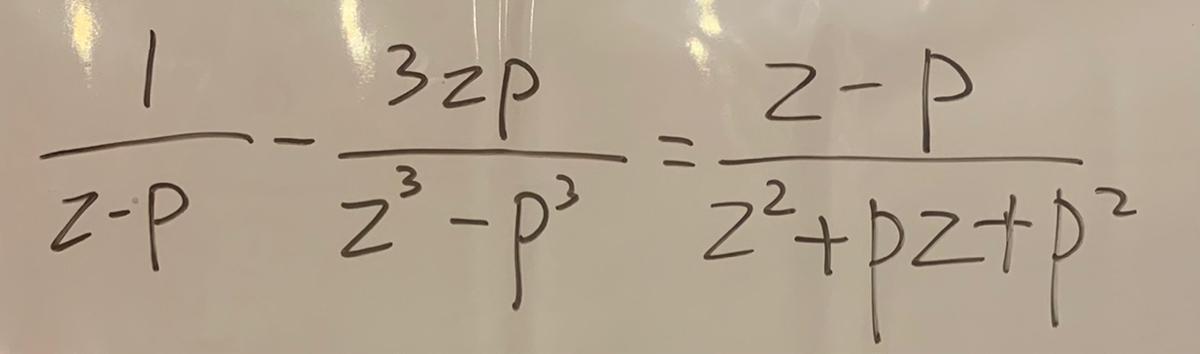 1/(z-p) - 3zp/(z³-p³) = (z-p)/(z²+pz+p²)